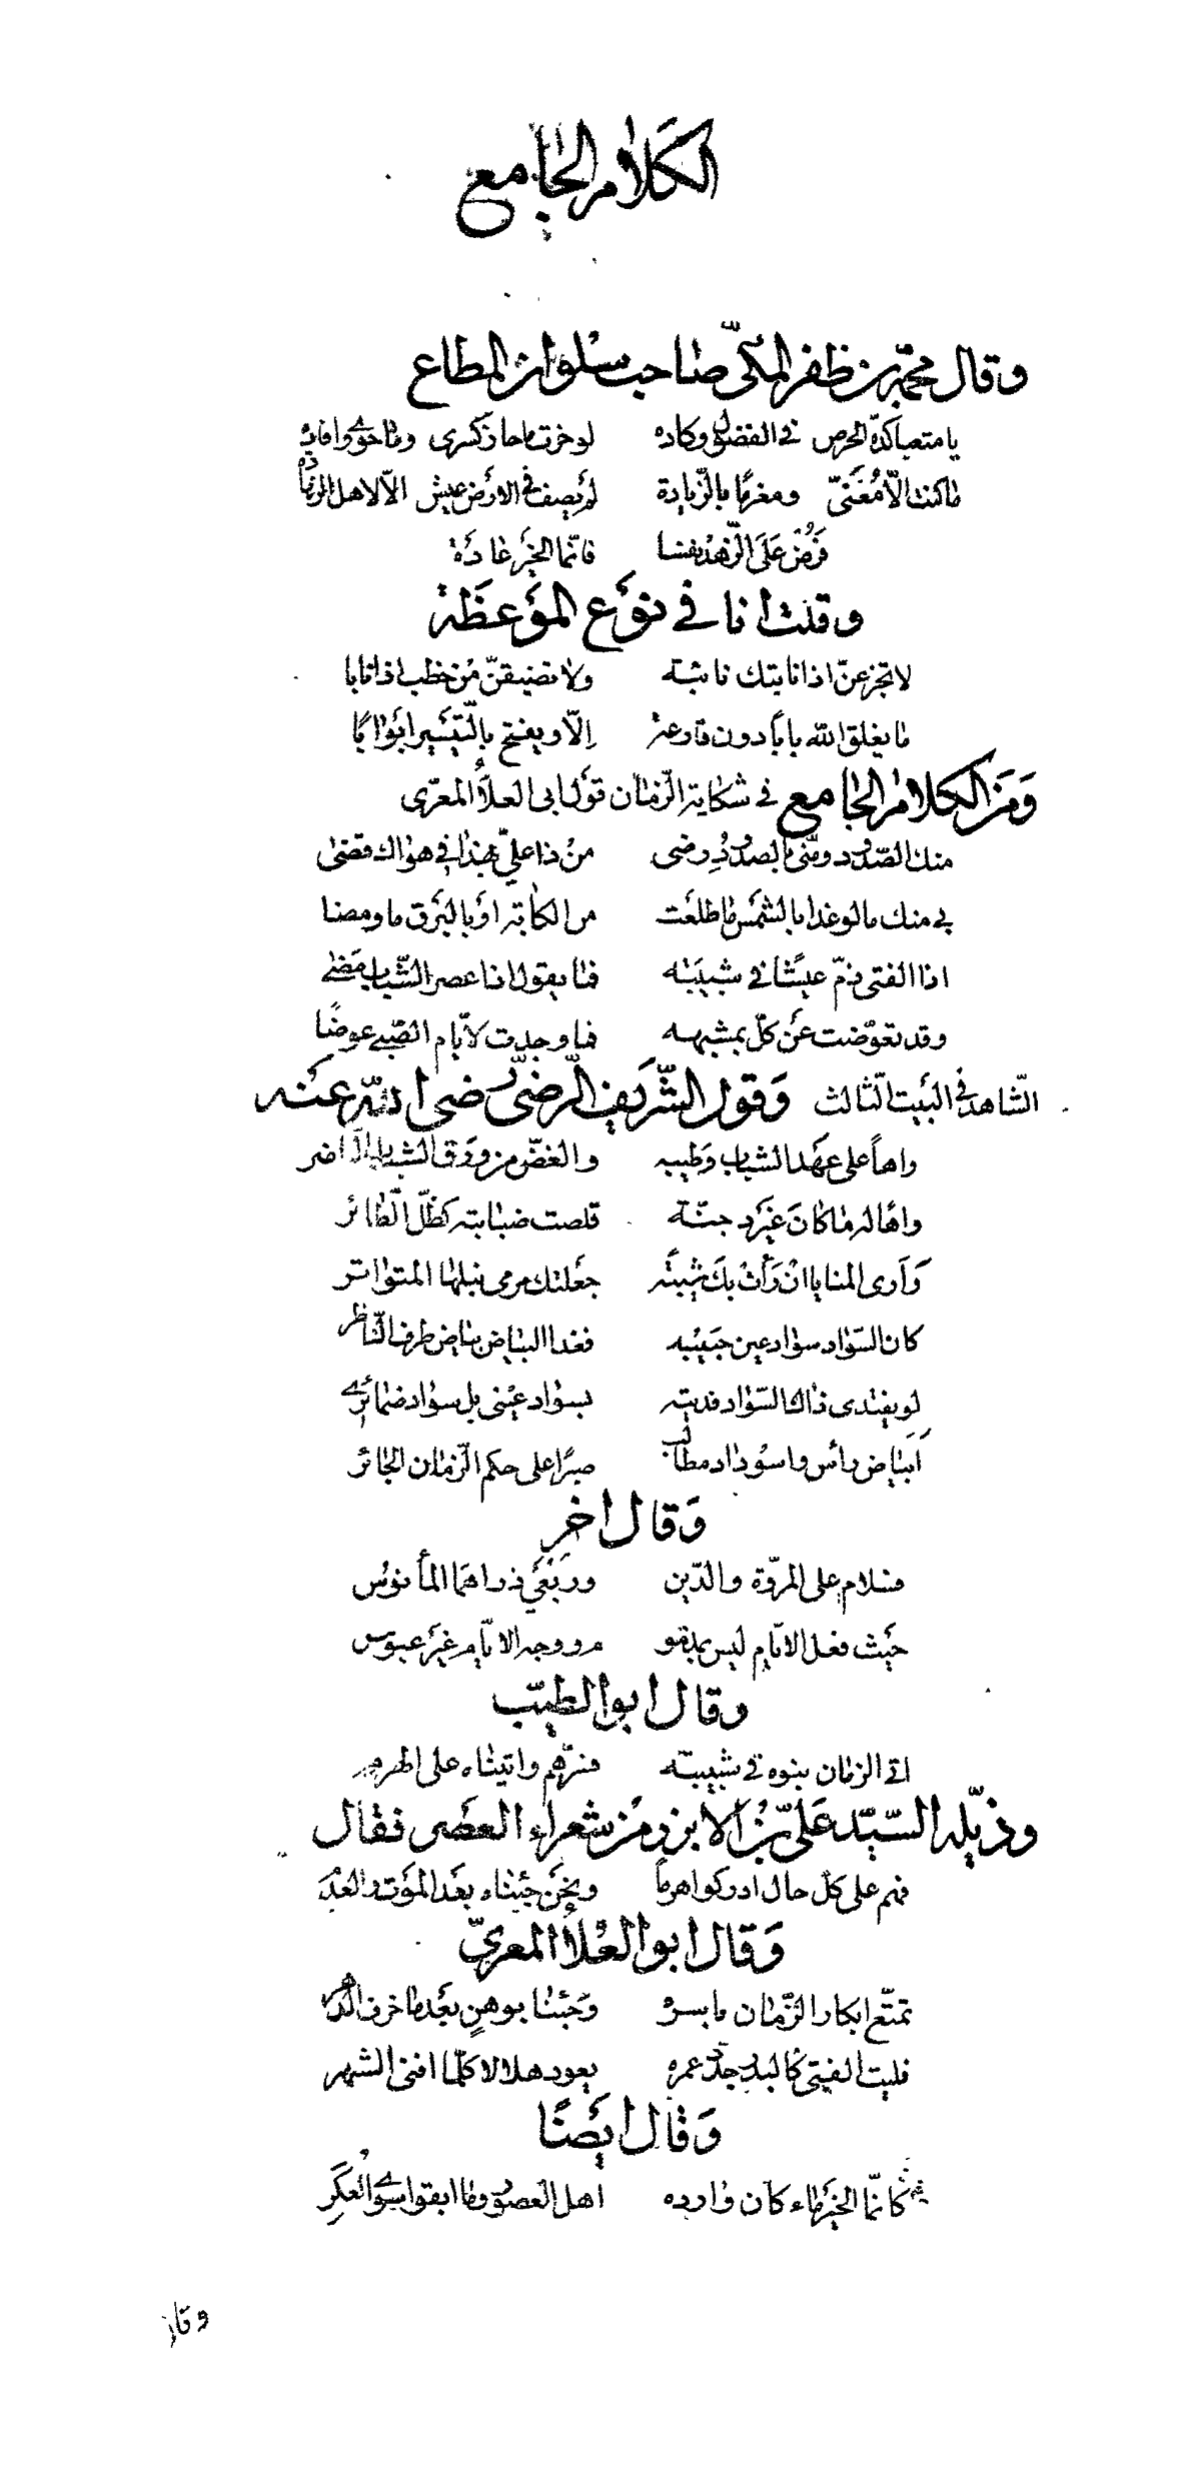 الكلام الجامع
وقال محمّد بن ظفر المكّىّ صاحب سلوان المطاع
يا متعباً كدّه الحرص فى الفضول وكاده لو حزت ما حاز كسرى وما حوى وافاده
ما كنت الّا مُعَنىّ ومغرمًا بالزّيادة لم يصف فى الارض عيش الّا لاهل الزهادة
فَرُضْ عَلَى الزّهد نفسا فانّما الخير عادة
وقلت انا فى نوع الموعظة
لا تجزعنّ اذا نابتك نائبة ولا تضيقنّ من خطب اذا نابا
ما يغلق الله باباً دون قارعة الّا ويفتح بالتّيسير ابوابًا
وَمن الكلام الجامع فى شكاية الزّمان قول ابى العلاء المعرّى
منك الصّدود ومنّى بالصدود رضى من ذا علىّ بهذا فى هواك قضى
بى منك ما لو غدا بالشمس ما طلعت من الكآبة او بالبرق ما ومضا
اذا الفتى ذمّ عيشًا فى شبيبته فما يقول اذا عصر الشّباب مضى
وقد تعوّضت عن كلّ بمشبهه فما وجدت لايّام الصّبى عوضًا
الشّاهد فى البيت الثّالث وَقول الشّريف الرّضىّ رضى الله عنه
واهاً على عهد الشباب وطيبه والغضّ من ورق الشباب النّاضر
واها له ما كان غير دجنّة قلصت صبابته كظلّ الطّائر
وَأرى المنايا ان رأت بك شيبة جعلتك مرمى نبلها المتواتر
كان السّواد سواد عين حبيبه فغدا البياض بياض طرف النّاظر
لو يفتدى ذاك السّواد فديته بسواد عينى بل سواد ضمائرى
أبياض رأس واسوداد مطالب صبرًا على حكم الزّمان الجائر
وَقال اخر
فسلام على المروّة والدّين وربعى ذراهما المأنوس
حيث فعل الايّام ليس بمذمو م ووجه الايّام غير عبوس
وقال ابو الطيّب
اتى الزمان بنوه فى شبيبته فسرّهم واتيناه على الهرم
وذيّله السّيّد علىّ بن الابزر من شعراء العصر فقال
فهم على كلّ حال ادركوا هرمًا ونحن جئناه بعد الموت والعدم
وَقال ابو العلاء المعرىّ
تمتّع ابكار الزّمان بايسره وَجئنا بوهنٍ بعد ما خرف الدّهر
فليت الفتى كالبدر جدّد عمره يعود هلالا كلّما افنى الشهر
وَقال ايضًا
كانّما الخير ماء كان وارده اهل العصور وما ابقوا سوى العكر
وقال